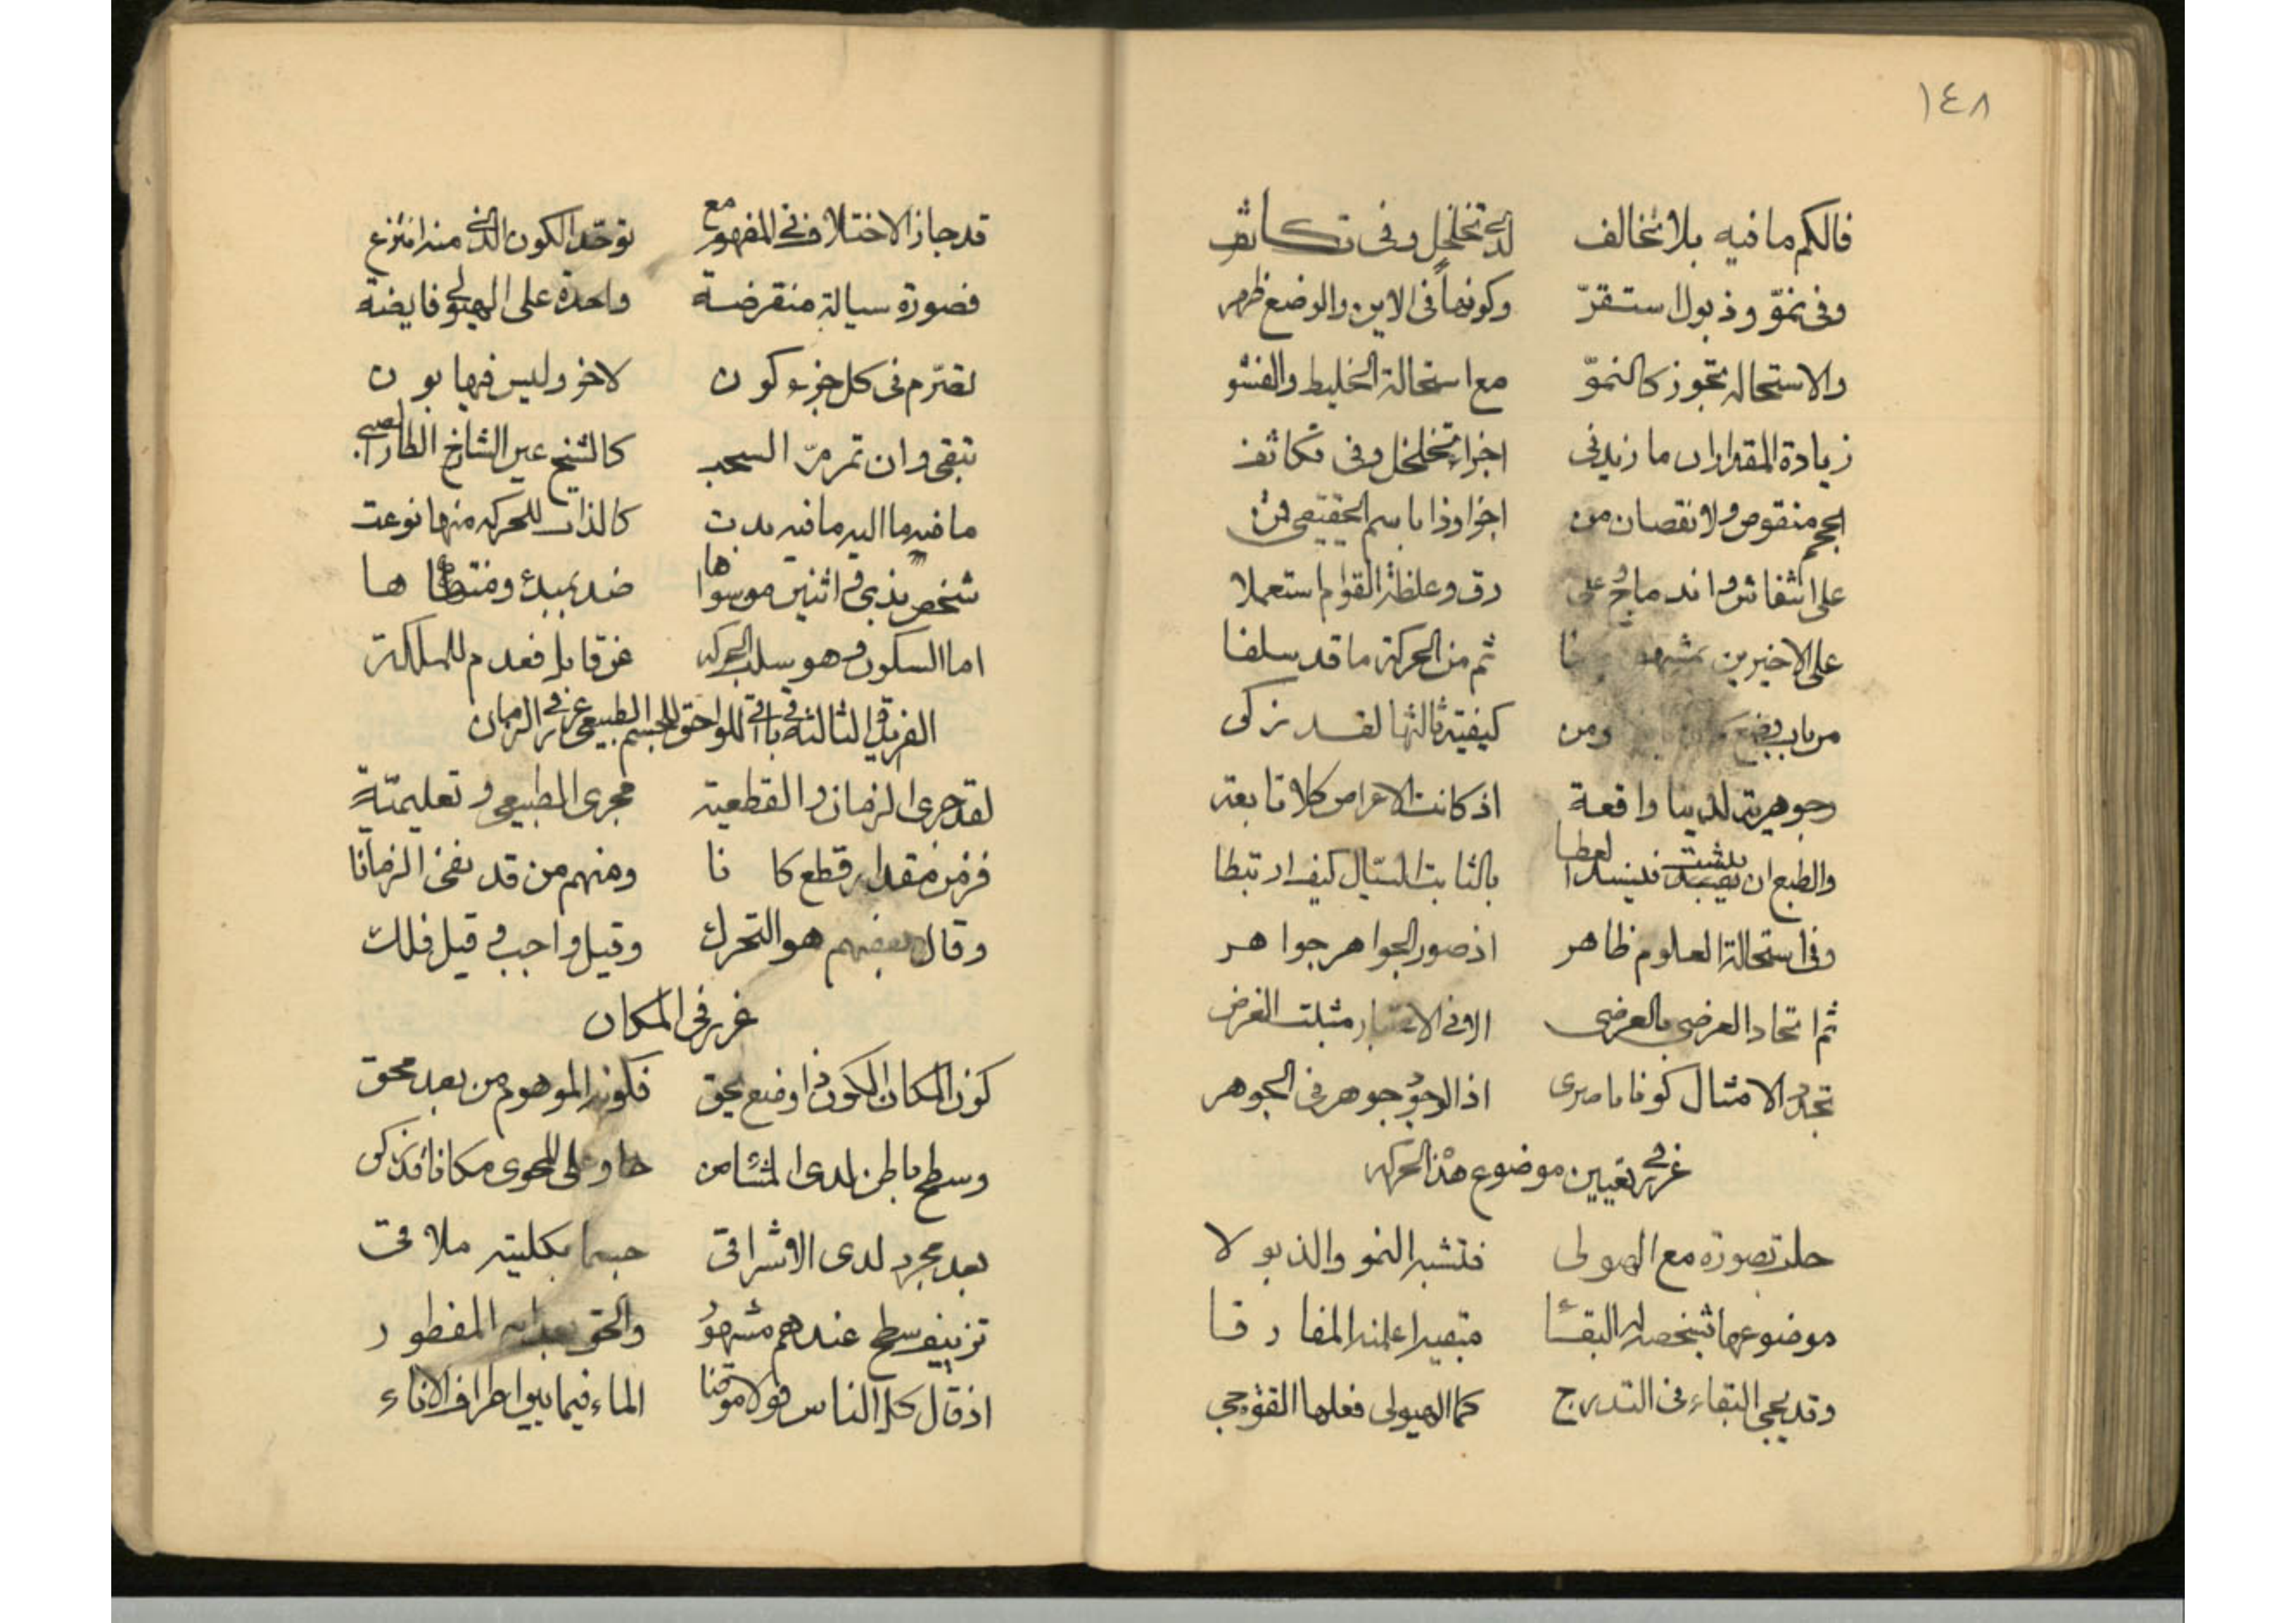 ١٤٨
فالكم ما فيه بلا تخالف لدى تخلخل وفى تكاثف
وفى نموّ وذبول استقرّ وكونها فى الاين والوضع ظهر
والاستحالة تجوز كالنموّ مع استحالة الخليط والفشو
زيادة المقدار ان ما زيد فى اجزاء تخلخل وفى تكاثف
الحجم منقوص ولا نقصان من اجزا وذا باسم الحقيقى قمن
على انتفاش واندماج وعلى رق وغلظة القوام استعملا
على الاخيرين ثم من الحركة ما قد سلفا
من باب ومن كيفية ثالثها لقد زكى
وجوهرية لدينا واقعة اذ كانت الاعراض كلا تابعة
والطبع ان يثبت فينسد العطا بالثابت السيّال كيف ارتبطا
وفى استحالة العلوم ظاهر اذ صور الجواهر جواهر
ثم اتحاد العرضى بالعرض الا فى الاعتبار مثبت الغرض
تجدد الامثال كونا ناصرى اذ الوجود جوهر فى الجوهر
غرر فى تعيين موضوع هذه الحركة
حلت بصورة مع الهيولى فتشبه النمو والذبولا
موضوعها شخصه له البقاء
وقد يجى البقاء فى التدرج كما الهيولى فعلها التقوجى
قد جاز الاختلاف فى المفهوم مع توحّد الكون الذى منه انتزع
فصورة سيالة منقرضة واحدة على الهيولى فايضة
تصرّم فى كل جزء كون لاخر وليس فيها بون
تبقى وان تمر مرّ السحب كالشيخ عين الشارخ الطار الصبى
ما فيه ما اليه ما فيه بدت كالذات للحركة منها نوعت
شخص بذى فى اثنين موسوها ضد بمبدء ومنتهاها
اما السكون فهو سلب الحركة عن قابل فعدم للملكة
الفريدة الثالثة فى باقى اللواحق للجسم الطبيعى غرر فى الزمان
لقد جرى الزمان والقطعية مجرى الطبيعى وتعليميّة
فزمن مقدار قطع كانا ومنهم من قد نفى الزمانا
وقال بعضهم هو التحرك وقيل واجب وقيل فلك
غرر فى المكان
كون المكان الكون ذا وضع يحق فكونه الموهوم من بعد محق
وسطح باطن لدى المشا من حاو على المحوى مكانا
بعد مجرد لدى الاشراقى جسما بكليته ملاقى
تزييف سطح عندهم مشهور والحق بعد انه المفطور
اذ قال كل الناس قولا موقنا الماء فيما بين اطراف الاناء